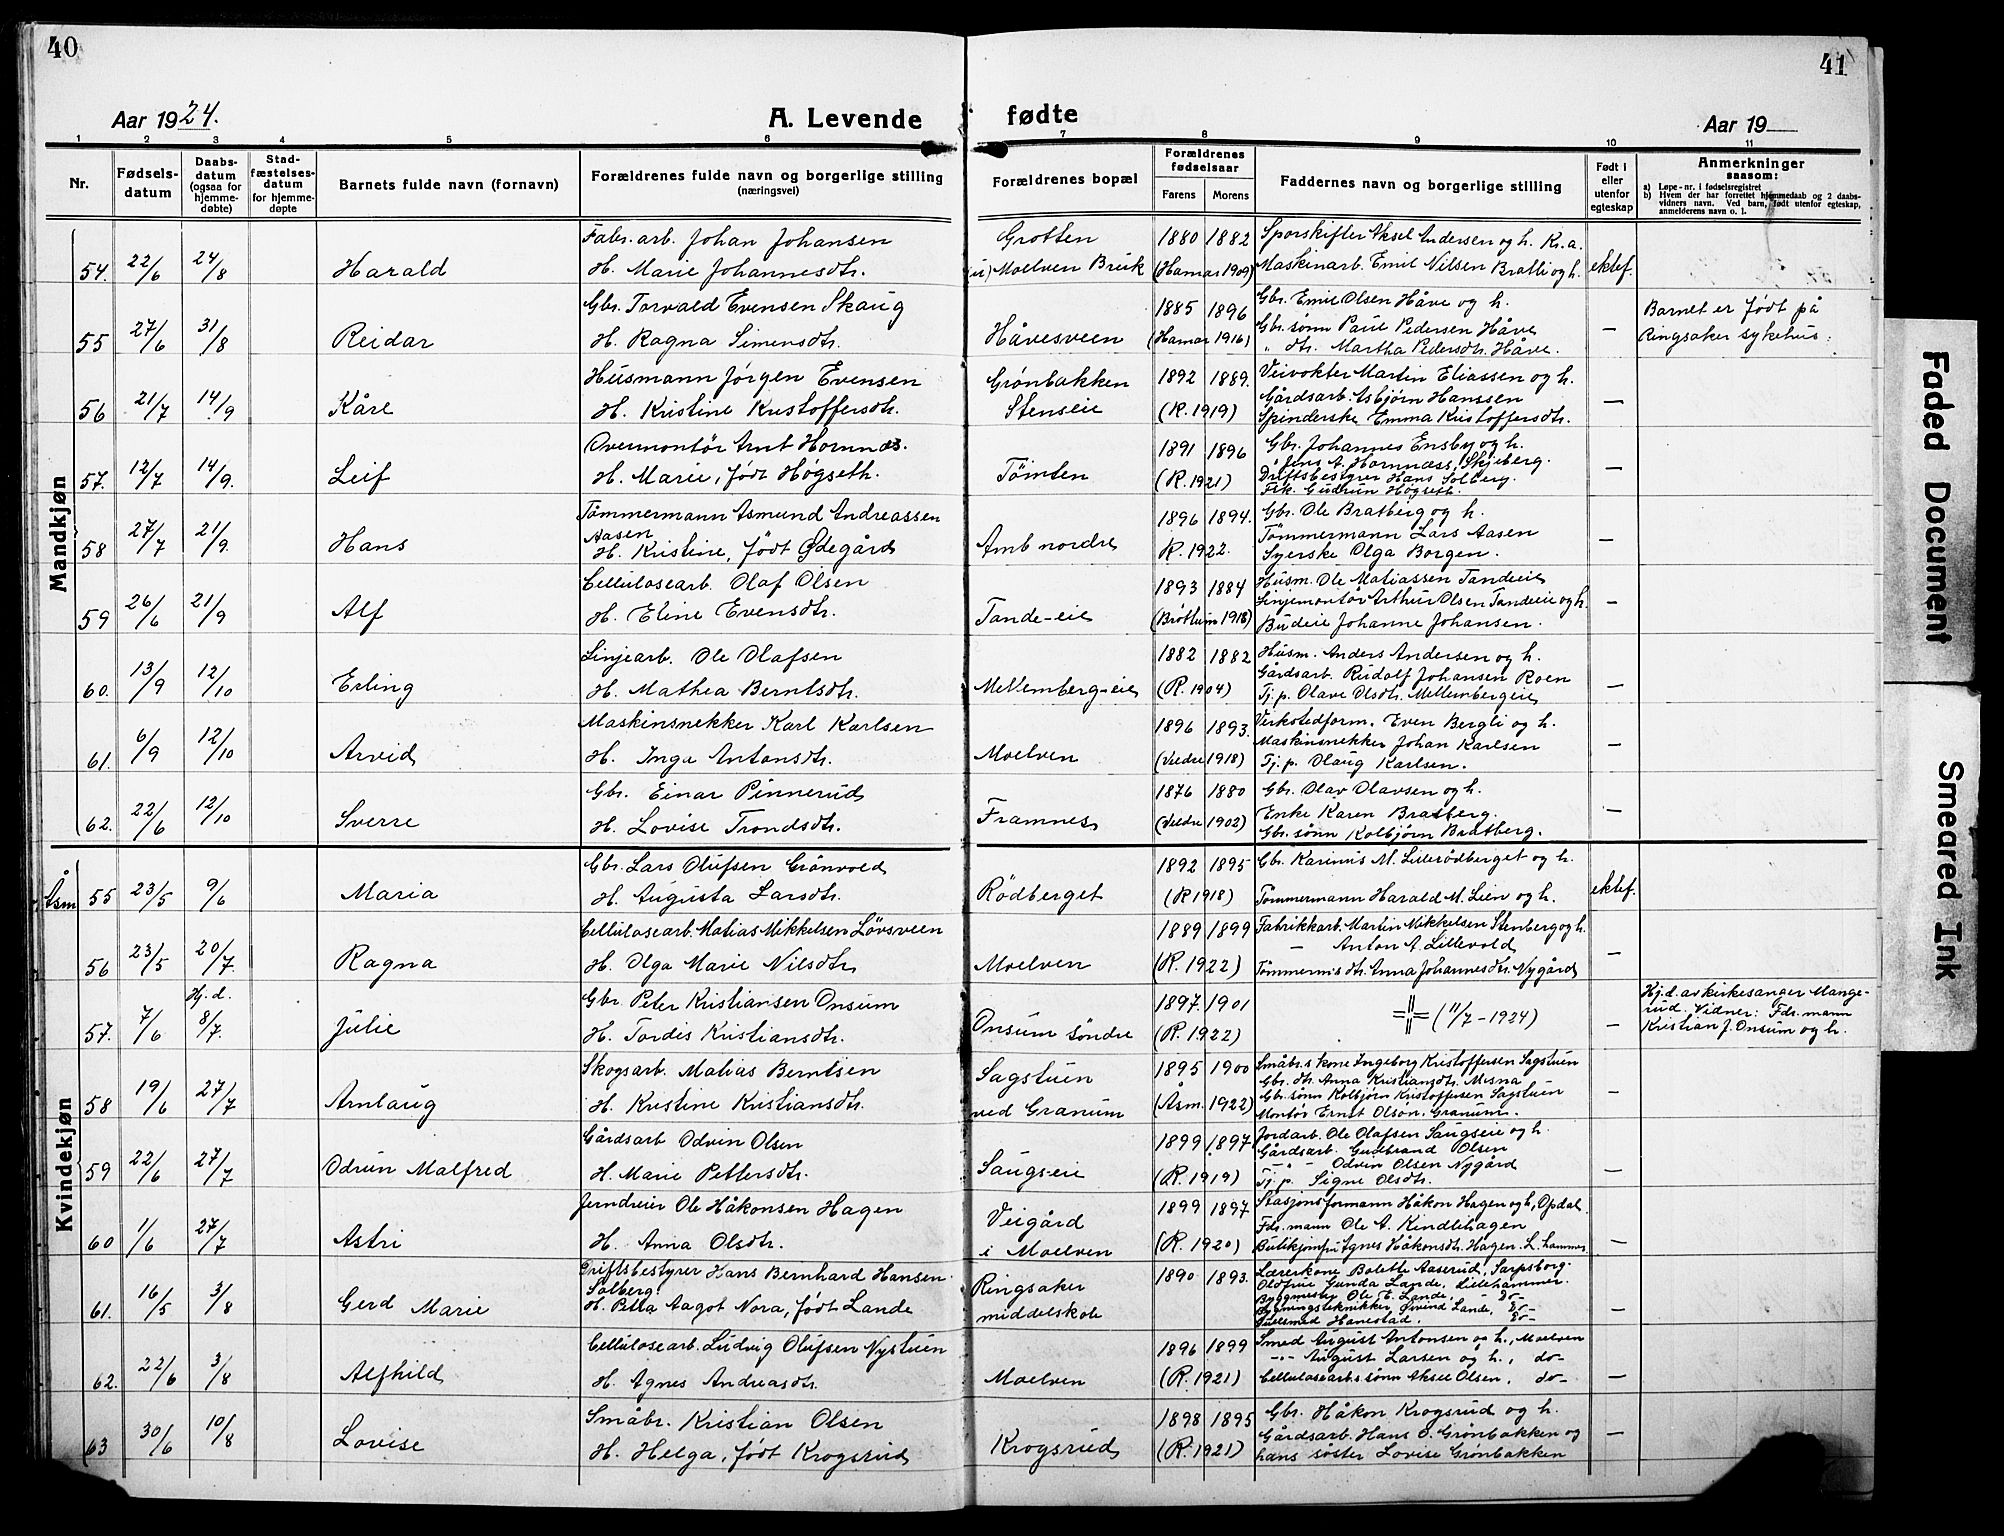 40
Aar 1924.
A. Levende
1 2 3 4 5 6
Nr.
Fødsels-
datum
Daabs-
datum
(ogsaa for
hjemme-
døbte)
Stad-
fæstelses-
datum
for hjemme-
døpte
Barnets fulde navn (fornavn)
Forældrenes fulde navn og borgerlige stilling
(næringsvei)
Mandkjøn
Fabr.arb. Johan Johansen
54. 22/6 24/8 Harald H. Marie Johannesdtr.
Gbr. Torvald Evensen Skaug
55 27/6 31/8 Reidar H. Ragna Simensdtr.
Husmann Jørgen Evensen
56 21/7 14/9 Kåre H. Kristine Kristoffersdtr.
Overmontør Arnt Hornnæs.
57. 12/7 14/9. Leif H. Marie, født Høgseth.
Tømmermann Asmund Andreassen
Aasen
58 27/7 21/9. Hans H. Kristine, født Ødegård
Cellulosearb. Olaf Olsen
59 26/6 21/9 Alf H. Eline Evensdtr.
Linjearb. Ole Olafsen
60. 13/9 12/10 Erling H. Mathea Berntsdtr.
Maskinsnekker Karl Karlsen
61. 6/9 12/10 Arvid H. Inga Antonsdtr.
Gbr. Einar Pinnerud
62. 22/6 12/10 Sverre H. Lovise Trondsdtr.
Åsm
Kvindekjøn
Gbr. Lars Olufsen Grönvold
55 23/5 9/6 Maria H. Augusta Larsdtr.
Cellulosearb. Matias Mikkelsen Lövsveen
56 23/5 20/7. Ragna H. Olga Marie Nilsdtr
Hj.d. Gbr. Peter Kristiansen Onsum
57. 7/6 8/7. Julie H. Tordis Kristiansdtr.
Skogsarb. Matias Berntsen
58 19/6 27/7 Arnlaug H. Kristine Kristiansdtr.
Gårdsarb Odvin Olsen
59 22/6 27/7 Odrun Malfred H. Marie Pettersdtr.
Jerndreier Ole Håkonsen Hagen
60 1/6 27/7 Astri H. Anna Olsdtr.
Driftsbestyrer Hans Bernhard Hansen
Solberg.
61. 16/5 3/8 Gerd Marie H. Petra Aagot Nora, født Lande
Cellulosearb. Ludvig Olufsen Nystuen
62. 22/6 3/8 Alfhild H. Agnes Andreasdtr.
Småbr. Kristian Olsen
63 30/6 10/8 Lovise H. Helga, født Krogsrud
41
fødte
Aar 19
7 8 9 10 11
Forældrenes bopæl
Forældrenes
fødselsaar
Farens Morens
Faddernes navn og borgerlige stilling
Født i
eller
utenfor
egteskap
Anmerkninger
saasom:
a) Løpe-nr. i fødselsregistret
b) Hvem der har forrettet hjemmedaab og 2 daabs-
vidners navn. Ved barn, født utenfor egteskap,
anmelderens navn o. l.
Grotten 1880 1882 Sporskifter Aksel Andersen og h. Kr.a.
Moelven Bruk (Hamar 1909) Maskinarb. Emil Nilsen Bratli og h. ektef.
1885 1896 Gbr. Emil Olsen Håve og h. Barnet er født på
Håvesveen (Hamar 1916) Gbr. sønn Paul Pedersen Håve — Ringsaker sykehus.
" dtr. Martha Pedersdtr. Håve.
Grønbakken 1892 1889. Veivokter Martin Eliassen og h.
Stenseie (R. 1919) Gårdsarb. Asbjørn Hanssen —
Spinderske Emma Kristoffersdtr.
1891 1896 Gbr. Johannes Ensby og h.
" Jens A. Hornnæss, Skjeberg.
Tømten (R. 1921) Driftsbestyrer Hans Solberg. —
Frk. Gudrun Høgseth.
1896 1894. Gbr. Ole Bratberg og h.
Amb nordre R. 1922. Tømmermann Lars Aasen —
Syerske Olga Borgen.
1893 1884 Husm. Ole Matiassen Tandeeie
Tande-eie (Brøttum 1918) Linjemontør Arthur Olsen Tandeeie og h. —
Budeie Johanne Johansen.
1882 1882 Husm. Anders Andersen og h.
Mellemberg-eie (R. 1904) Gårdsarb. Rudolf Johansen Roen —
Tj. p. Olave Olsdtr. Mellembergeie
1896 1893. Verkstedform. Even Bergli og h.
Moelven (Veldre 1918) Maskinsnekker Johan Karlsen —
Tj. p. Olaug Karlsen.
1876 1880 Gbr. Olav Olavsen og h.
Framnes (Veldre 1902) Enke Karen Bratberg. —
Gbr. sønn Kolbjørn Bratberg.
1892 1895 Gbr. Karinus M. Lillerødberget og h.
Rødberget (R 1918) Tømmermann Harald M. Lien og h. ektef.
1889 1899 Fabrikkarb. Martin Mikkelsen Stenberg og h.
— Anton A. Lillevold
Moelven (R. 1922) Tømmerms dtr. Anna Johannesdtr. Nygård —
1897. 1901 (11/7 - 1924) Hj.d. av kirkesanger Mange-
rud. Vidner: Fdr.mann
Onsum søndre (R. 1922) — Kristian J. Onsum og h.
Sagstuen 1895 1900 Småbr.s kone Ingeborg Kristoffersen Sagstuen
Gbr. dtr. Anna Kristiansdtr. Mesna
ved Granum (Åsm. 1922) Gbr. sønn Kolbjørn Kristoffersen Sagstuen —
Montør Ernst Olson. Granum.
1899 1897 Jordarb. Ole Olafsen Saugseie og h.
Gårdsarb. Gudbrand Olsen
Saugseie (R. 1919) — " — Odvin Olsen Nygård —
Tj. p. Signe Olsdtr.
Veigård 1899 1897 Stasjonsformann Håkon Hagen og h, Opdal
Fdr.mann Ole A. Kindlihagen
i Moelven (R. 1920) Butikjomfru Agnes Håkonsdtr. Hagen. L.hammer —
Ringsaker 1890 1893. Lærerkone Bolette Aaserud, Sarpsborg.
Oldfrue Gunda Lande, Lillehammer.
middelskole Byggmester Ole E. Lande, - Do-
Bygningstekniker Øivind Lande, Do- —
Gullsmed Hanestad. Do-
1896 1899 Smed August Antonsen og h., Moelven
— " — August Larsen og h., do-
Moelven (R. 1921) Cellulosearb.s sønn Aksel Olsen, do- —
1898 1895 Gbr. Håkon Krogsrud og h.
Krogsrud (R. 1921) Gårdsarb. Hans O. Grønbakken og —
hans søster Lovise Grønbakken
Faded Document
Smeared Ink